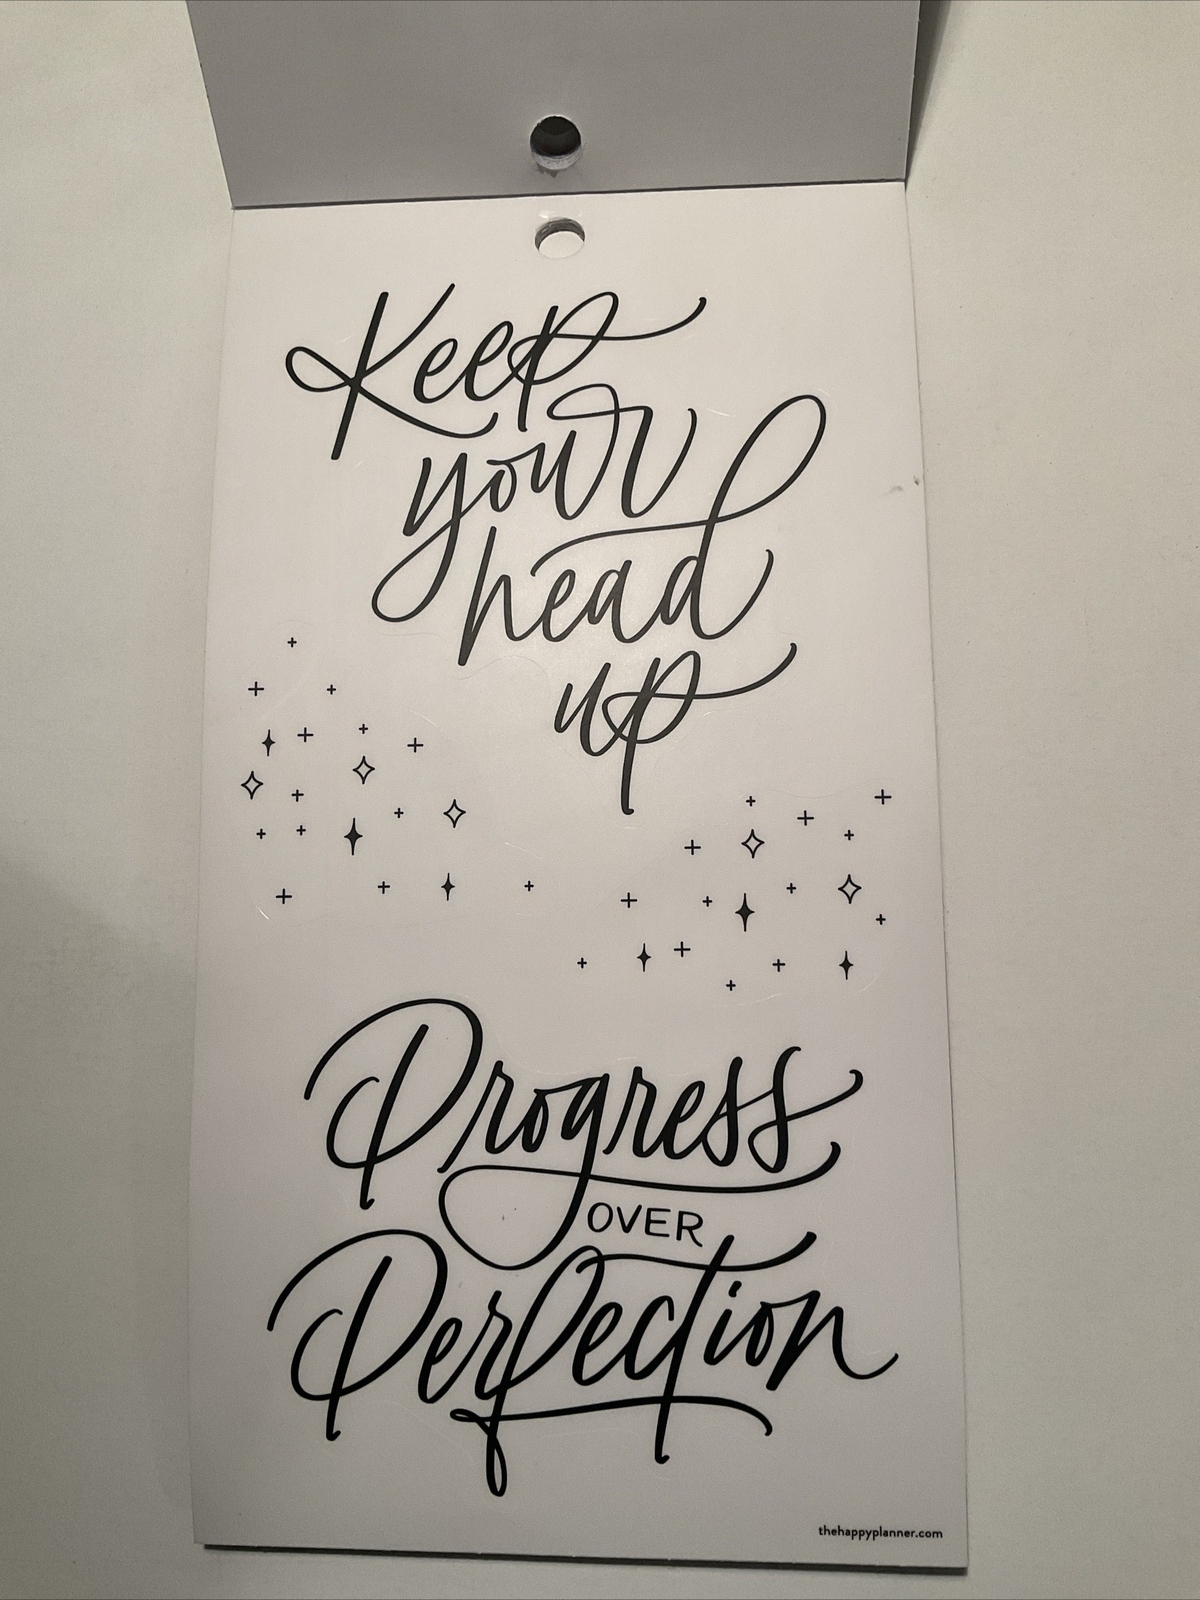 Keep
your
head
up
Progress
OVER
Perfection
thehappyplanner.com